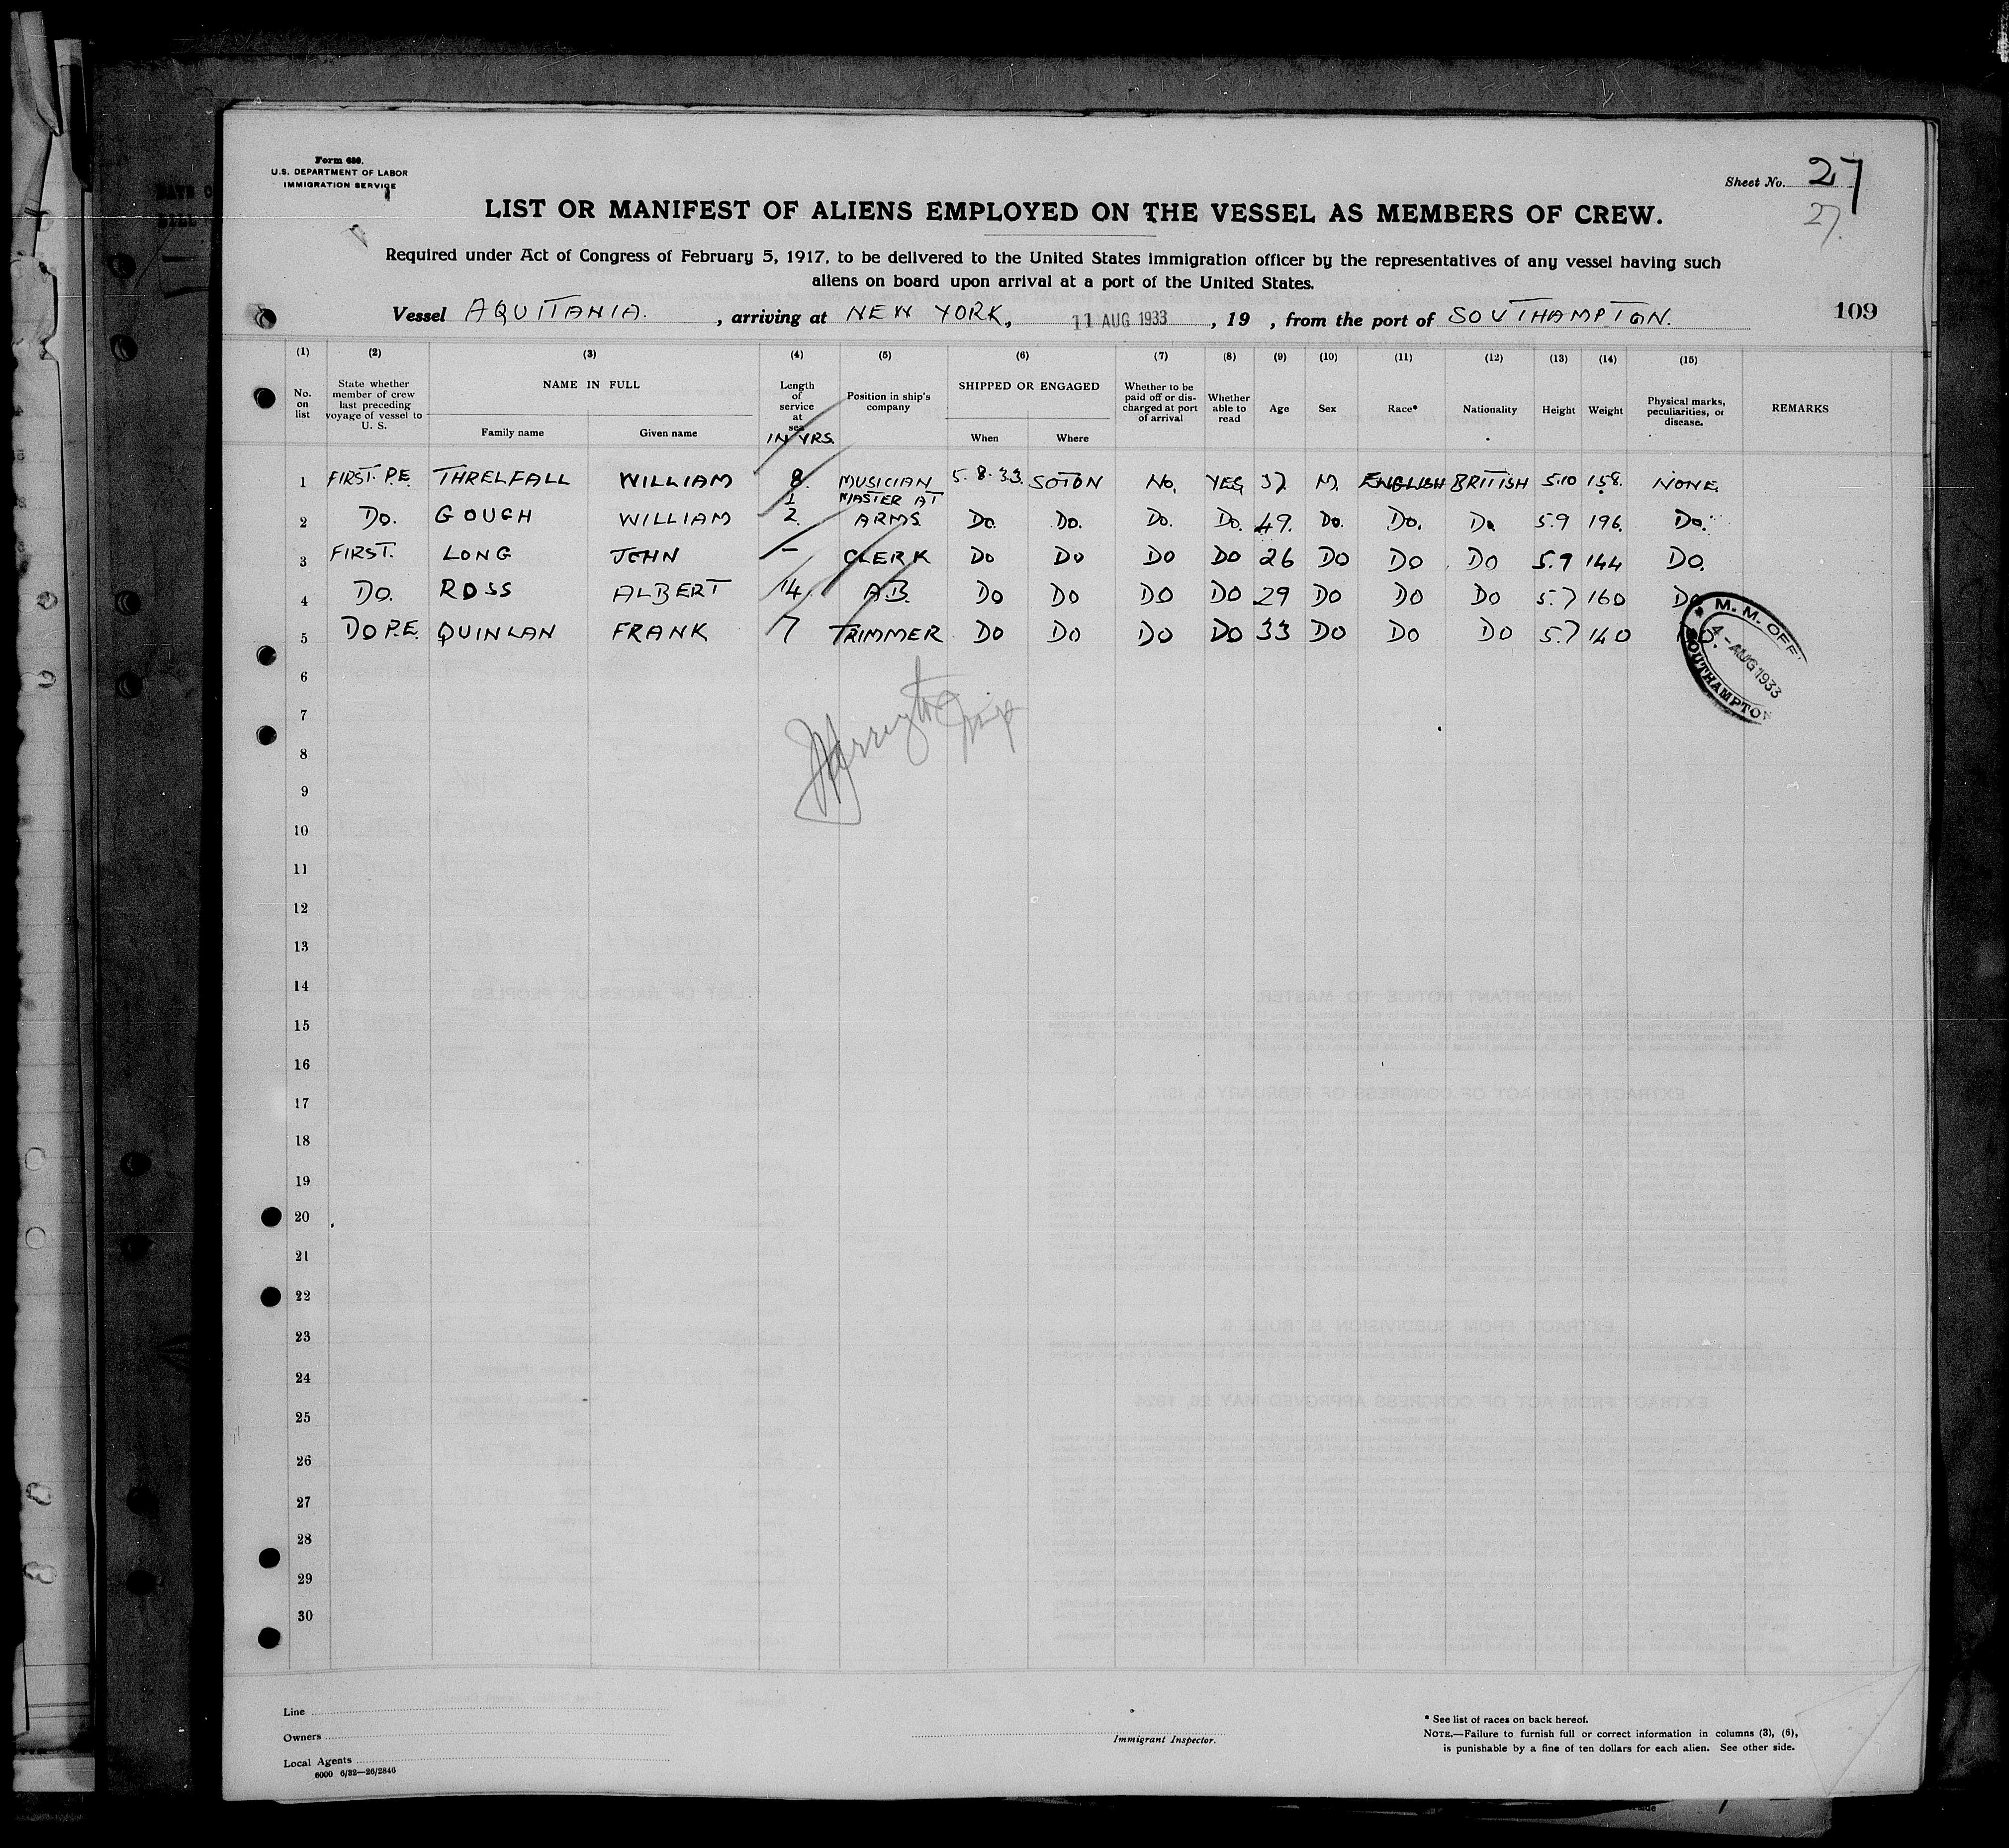 Form 680.
U.S. DEPARTMENT OF LABOR
IMMIGRATION SERVICE
Sheet No. 27
27.
LIST OR MANIFEST OF ALIENS EMPLOYED ON THE VESSEL AS MEMBERS OF CREW.
Required under Act of Congress of February 5, 1917, to be delivered to the United States immigration officer by the representatives of any vessel having such
aliens on board upon arrival at a port of the United States.
Vessel AQUITANIA. , arriving at NEW YORK, 11 AUG 1933 , 19 , from the port of SOUTHAMPTON. 109
(1) (2) (3) (4) (5) (6) (7) (8) (9) (10) (11) (12) (13) (14) (15)
No. on list
State whether member of crew last preceding voyage of vessel to U. S.
NAME IN FULL
Family name Given name
Length of service at sea IN YRS.
Position in ship's company
SHIPPED OR ENGAGED
When Where
Whether to be paid off or discharged at port of arrival
Whether able to read
Age
Sex
Race*
Nationality
Height
Weight
Physical marks, peculiarities, or disease.
REMARKS
1 FIRST. P.E. THRELFALL WILLIAM 8. MUSICIAN 5.8.33. SOTON No. YES 37 M. ENGLISH BRITISH 5.10 158. NONE.
2 Do. GOUGH WILLIAM 1/2. MASTER AT ARMS. Do. Do. Do. Do. 49. Do. Do. Do 5.9 196. Do.
3 FIRST. LONG JOHN – CLERK Do Do Do Do 26 Do Do Do 5.9 144 Do.
4 Do. ROSS ALBERT 14. A.B. Do Do Do Do 29 Do Do Do 5.7 160 Do
5 DO P.E. QUINLAN FRANK 7 TRIMMER Do Do Do Do 33 Do Do Do 5.7 140 Do.
M. M. OFF
4 - AUG 1933
SOUTHAMPTON
6
7
8
9
10
11
12
13
14
15
16
17
18
19
20
21
22
23
24
25
26
27
28
29
30
Line
Owners
Local Agents
6000 6/32—26/2846
Immigrant Inspector.
* See list of races on back hereof.
NOTE.—Failure to furnish full or correct information in columns (3), (6),
is punishable by a fine of ten dollars for each alien. See other side.